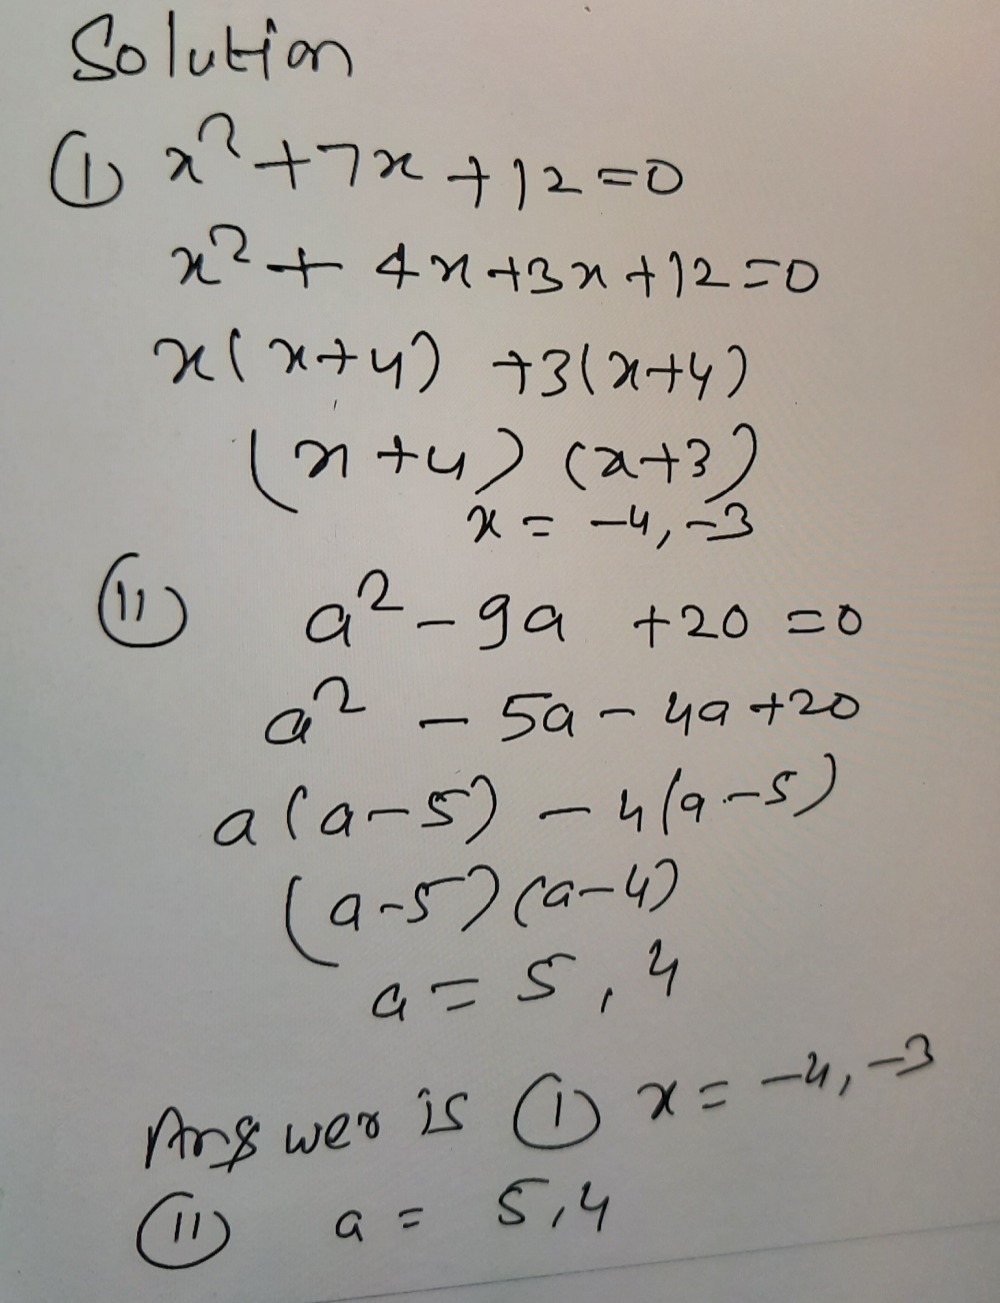 Solution
(I) x² + 7x + 12 = 0
x² + 4x + 3x + 12 = 0
x(x+4) + 3(x+4)
(x+4) (x+3)
x = -4, -3
(II) a² - 9a + 20 = 0
a² - 5a - 4a + 20
a(a-5) - 4(a-5)
(a-5) (a-4)
a = 5, 4
Answer is (I) x = -4, -3
(II) a = 5, 4